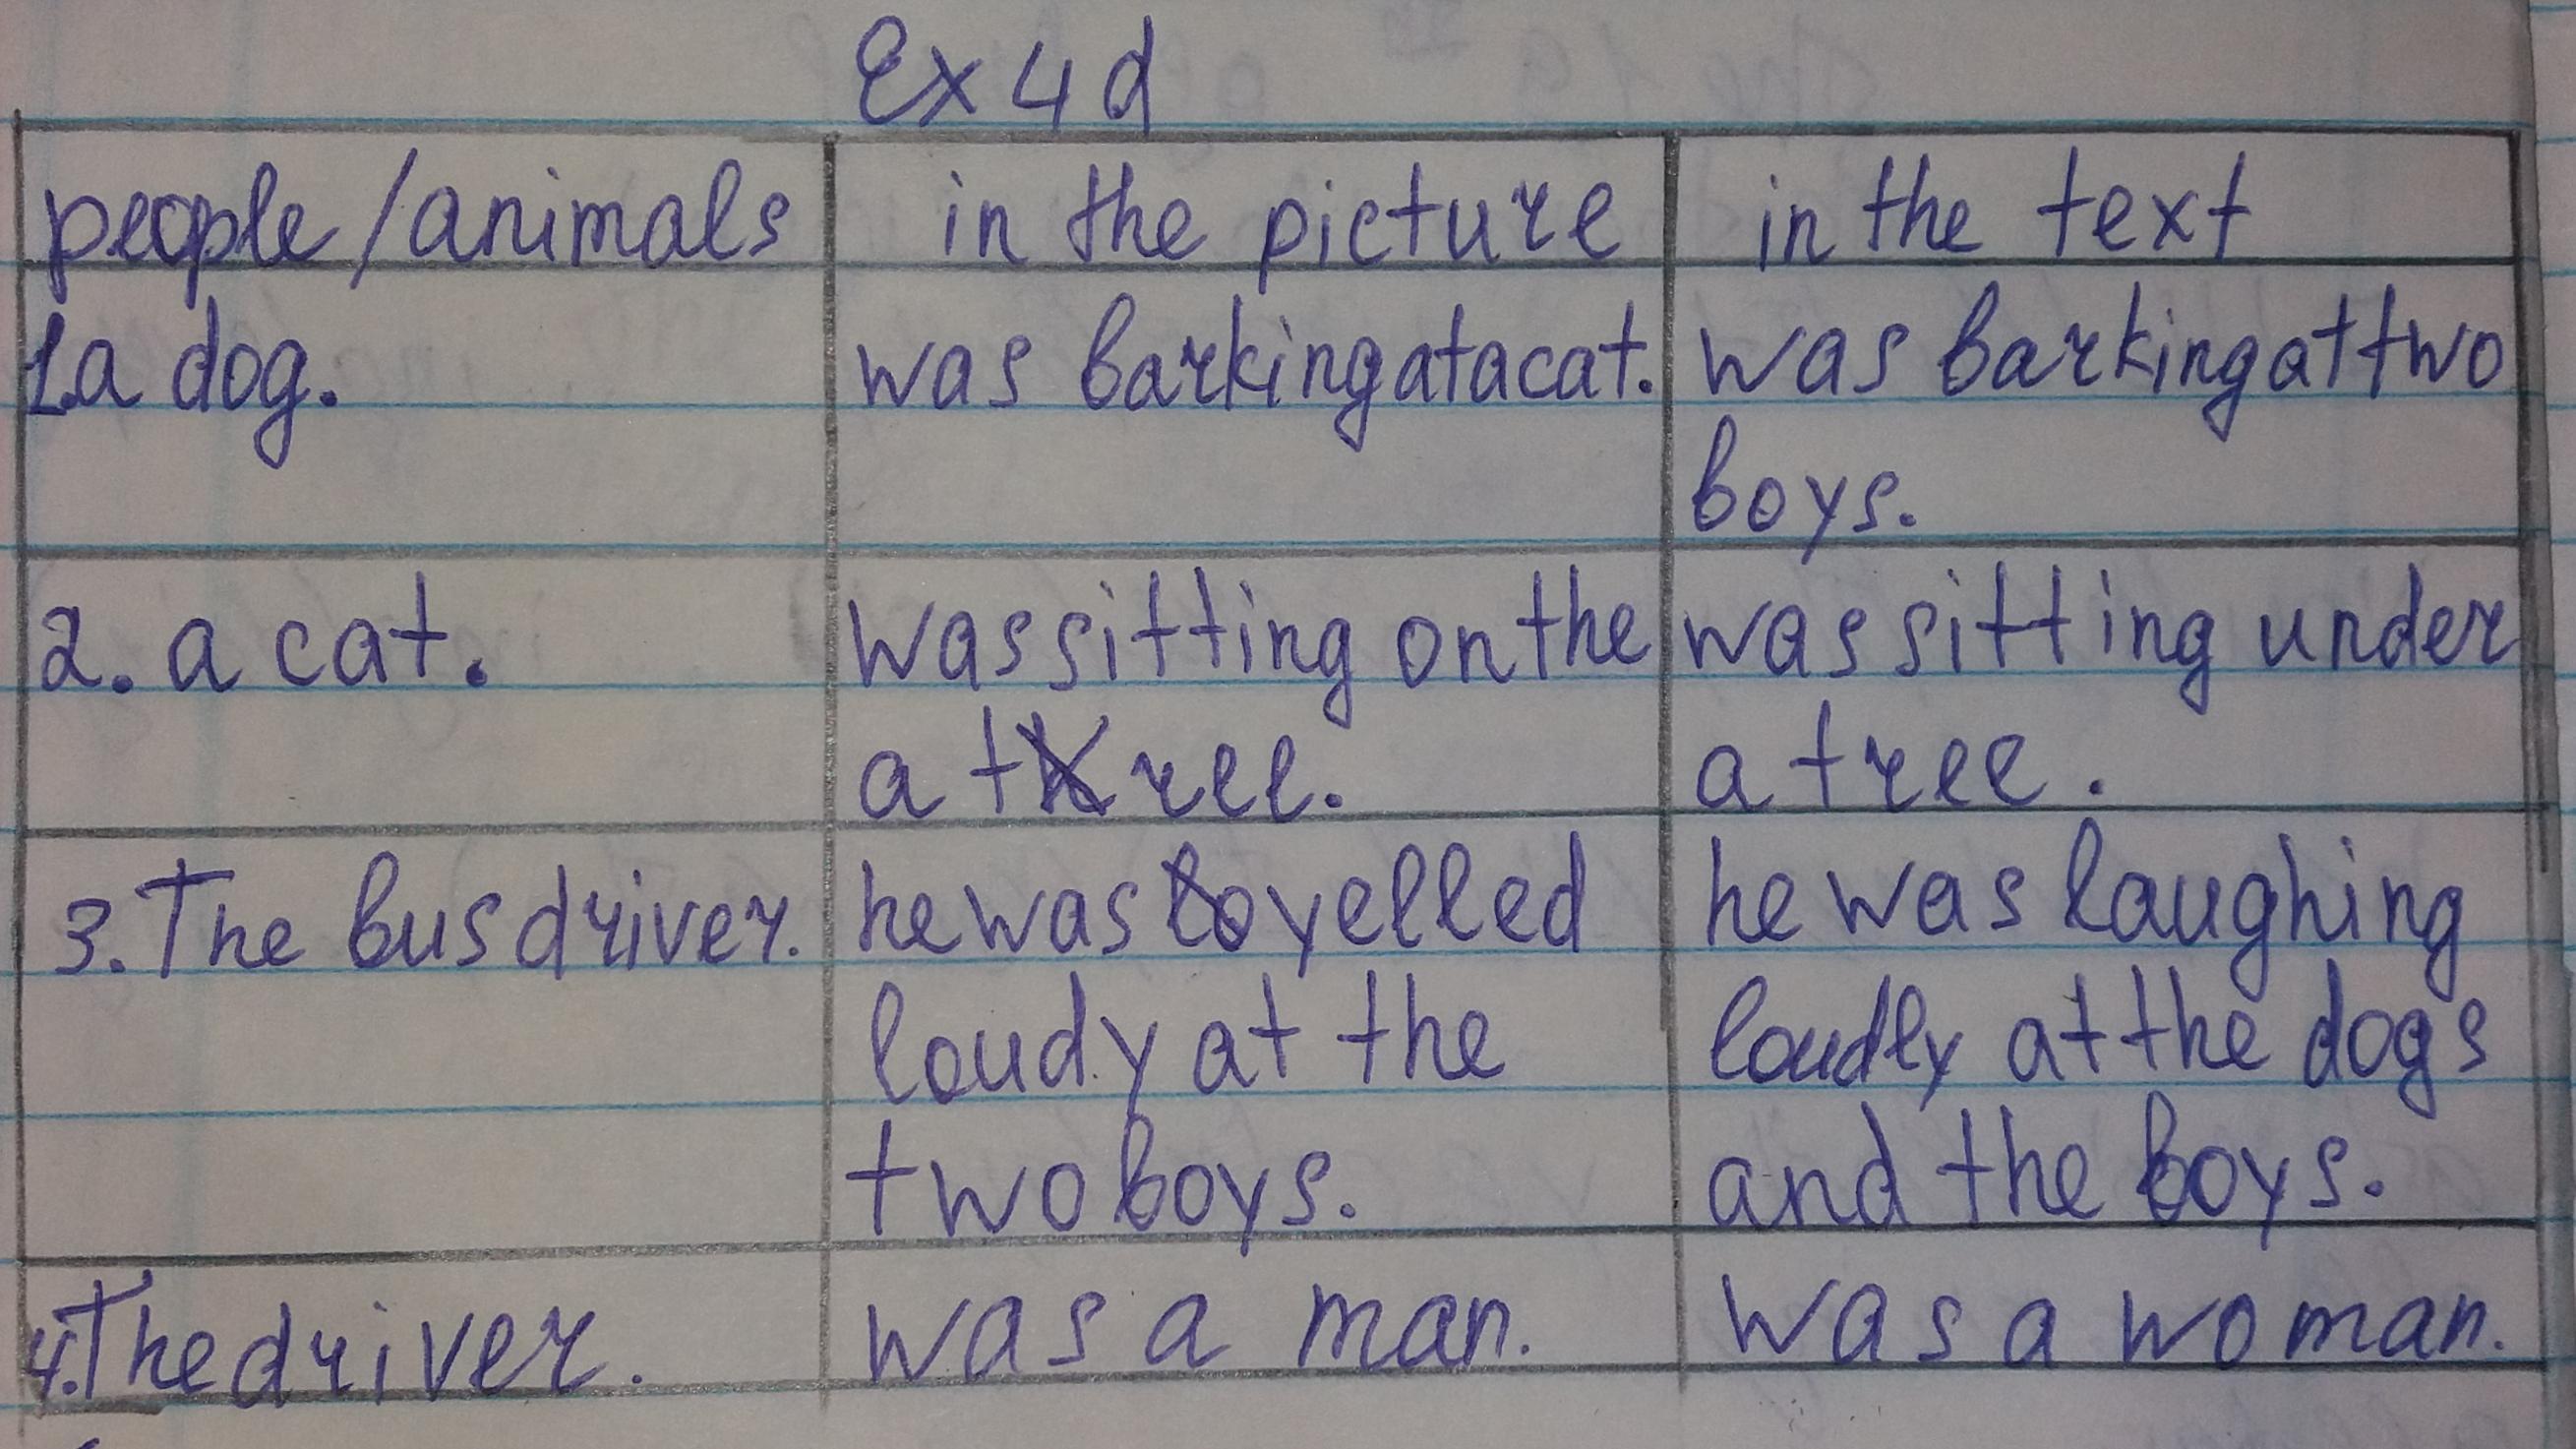 Ex 4 d
people/animals in the picture in the text
1.a dog. was barking at a cat. was barking at two
boys.
2. a cat. was sitting on the was sitting under
a tree. a tree.
3. The bus driver. he was yelled he was laughing
loudy at the loudly at the dogs
two boys. and the boys.
4. The driver. was a man. was a woman.